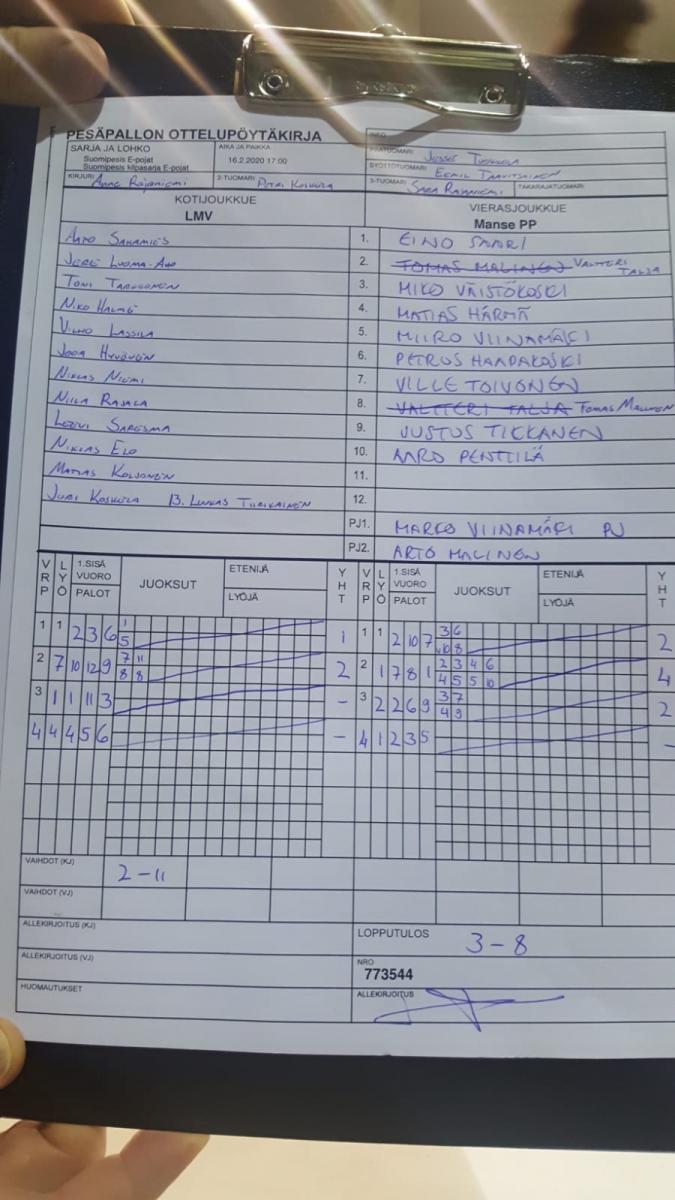 PESÄPALLON OTTELUPÖYTÄKIRJA
SARJA JA LOHKO
Suomipesis E-pojat
Suomipesis kilpasarja E-pojat
AIKA JA PAIKKA
16.2.2020 17:00
PÄÄTUOMARI
SYÖTTÖTUOMARI
KIRJURI Anne Rajaniemi
2-TUOMARI
3-TUOMARI Sara Rajaniemi
TAKARAJATUOMARI
KOTIJOUKKUE
LMV
VIERASJOUKKUE
Manse PP
1. EINO SAARI
JERE LUOMA-AHO 2. TOMAS MALINEN VALTTERI TALJA
TONI 3. MIKO VÄISTÖKOSKI
NIKO HALME 4. MATIAS HÄRMÄ
VILHO LASSILA 5. MIIRO VIINAMÄKI
JOOA HYVÖNEN 6. PETRUS HAAPAKOSKI
NIKLAS NIEMI 7. VILLE TOIVONEN
NIILA RAJALA 8. VALTTERI TALJA TOMAS MALINEN
9. JUSTUS TIKKANEN
NIKLAS ELO 10. AARO PENTTILÄ
MATIAS KOLJONEN 11.
12.
13. LUUKAS TIIRIKAINEN
PJ1. MARKO VIINAMÄKI PJ
PJ2. ARTO MALINEN
VRP LYÖ 1.SISÄ VUORO PALOT JUOKSUT ETENIJÄ LYÖJÄ YHT VRP LYÖ 1.SISÄ VUORO PALOT JUOKSUT ETENIJÄ LYÖJÄ YHT
1 1 2 3 6 1 1 1 1 2 10 7 3 6 2
5 10 8
2 7 10 12 9 7 11 2 2 1 7 8 1 2 3 4 6 4
8 8 4 5 5 10
3 1 1 11 3 - 3 2 2 6 9 3 7 2
4 9
4 4 4 5 6 - 4 1 2 3 5 -
VAIHDOT (KJ) 2-11
VAIHDOT (VJ)
ALLEKIRJOITUS (KJ)
LOPPUTULOS 3-8
ALLEKIRJOITUS (VJ)
NRO
773544
HUOMAUTUKSET
ALLEKIRJOITUS